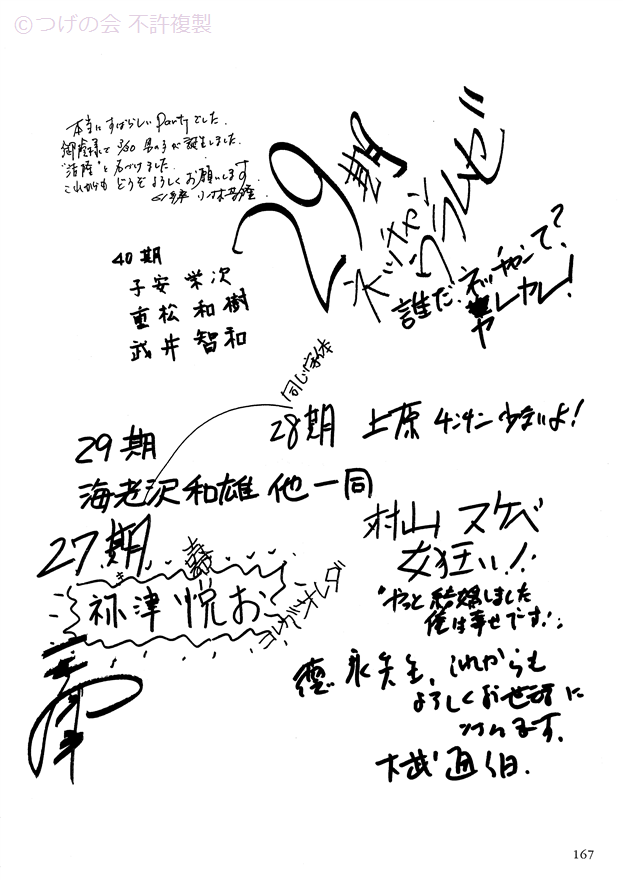 © つげの会 不許複製
本当にすばらしいPartyでした。
御陰様で 3/20 男の子が誕生しました。
と名づけました。
これからも どうぞよろしくお願いします。
29期
ネッチャン
ワラルゼ!!
誰だ、ネッチャンて?
ヤレヤレ!
40期
子安 栄次
重松 和樹
武井 智和
同じ字体
29期
28期 上原 うまいよ!
海老沢和雄 他一同
27期
祢津 悦お
コレガオレダ
村山 スケベ
女狂い!!
やっと結婚しました
俺は幸せです!
徳永先生、これからも
よろしくお世話に
なります。
167